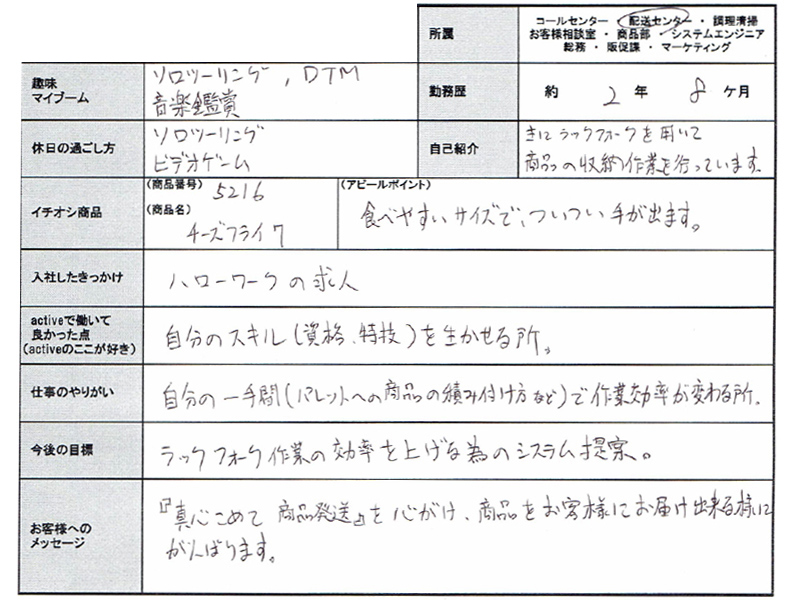 所属
コールセンター ・ 配送センター ・ 調理清掃
お客様相談室 ・ 商品部 ・ システムエンジニア
総務 ・ 販促課 ・ マーケティング
趣味
マイブーム
ソロツーリング , DTM
音楽鑑賞
勤務歴
約 2 年 8 ケ月
休日の過ごし方
ソロツーリング
ビデオゲーム
自己紹介
主にラックフォークを用いて
商品の収納作業を行っています。
イチオシ商品
(商品番号) 5216
(商品名)
チーズフライク
(アピールポイント)
食べやすいサイズで、ついつい手が出ます。
入社したきっかけ
ハローワークの求人
activeで働いて
良かった点
(activeのここが好き)
自分のスキル(資格、特技)を生かせる所。
仕事のやりがい
自分の一手間(パレットへの商品の積み付け方など)で作業効率が変わる所。
今後の目標
ラックフォーク作業の効率を上げる為のシステム提案。
お客様への
メッセージ
『真心こめて商品発送』を心がけ、商品をお客様にお届け出来る様に
がんばります。